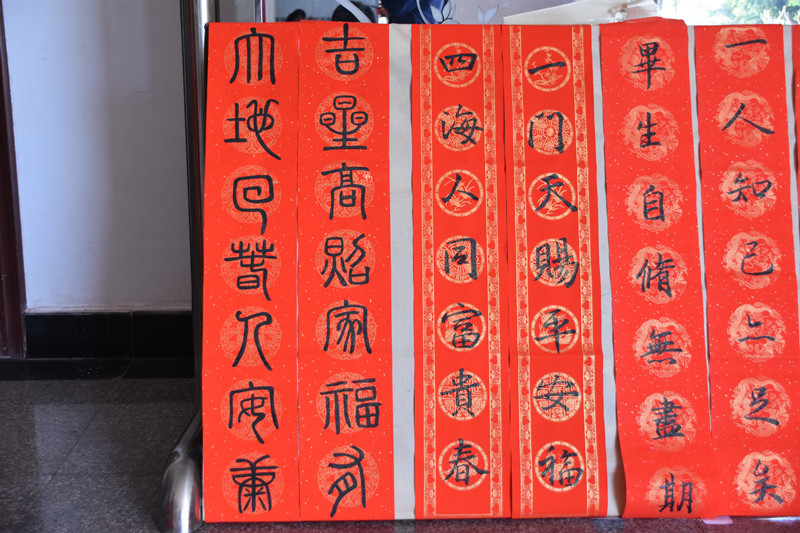 一人知己亦足矣
畢生自脩無盡期
一门天賜平安福
四海人同富貴春
吉星高照家福有
大地回春人安康